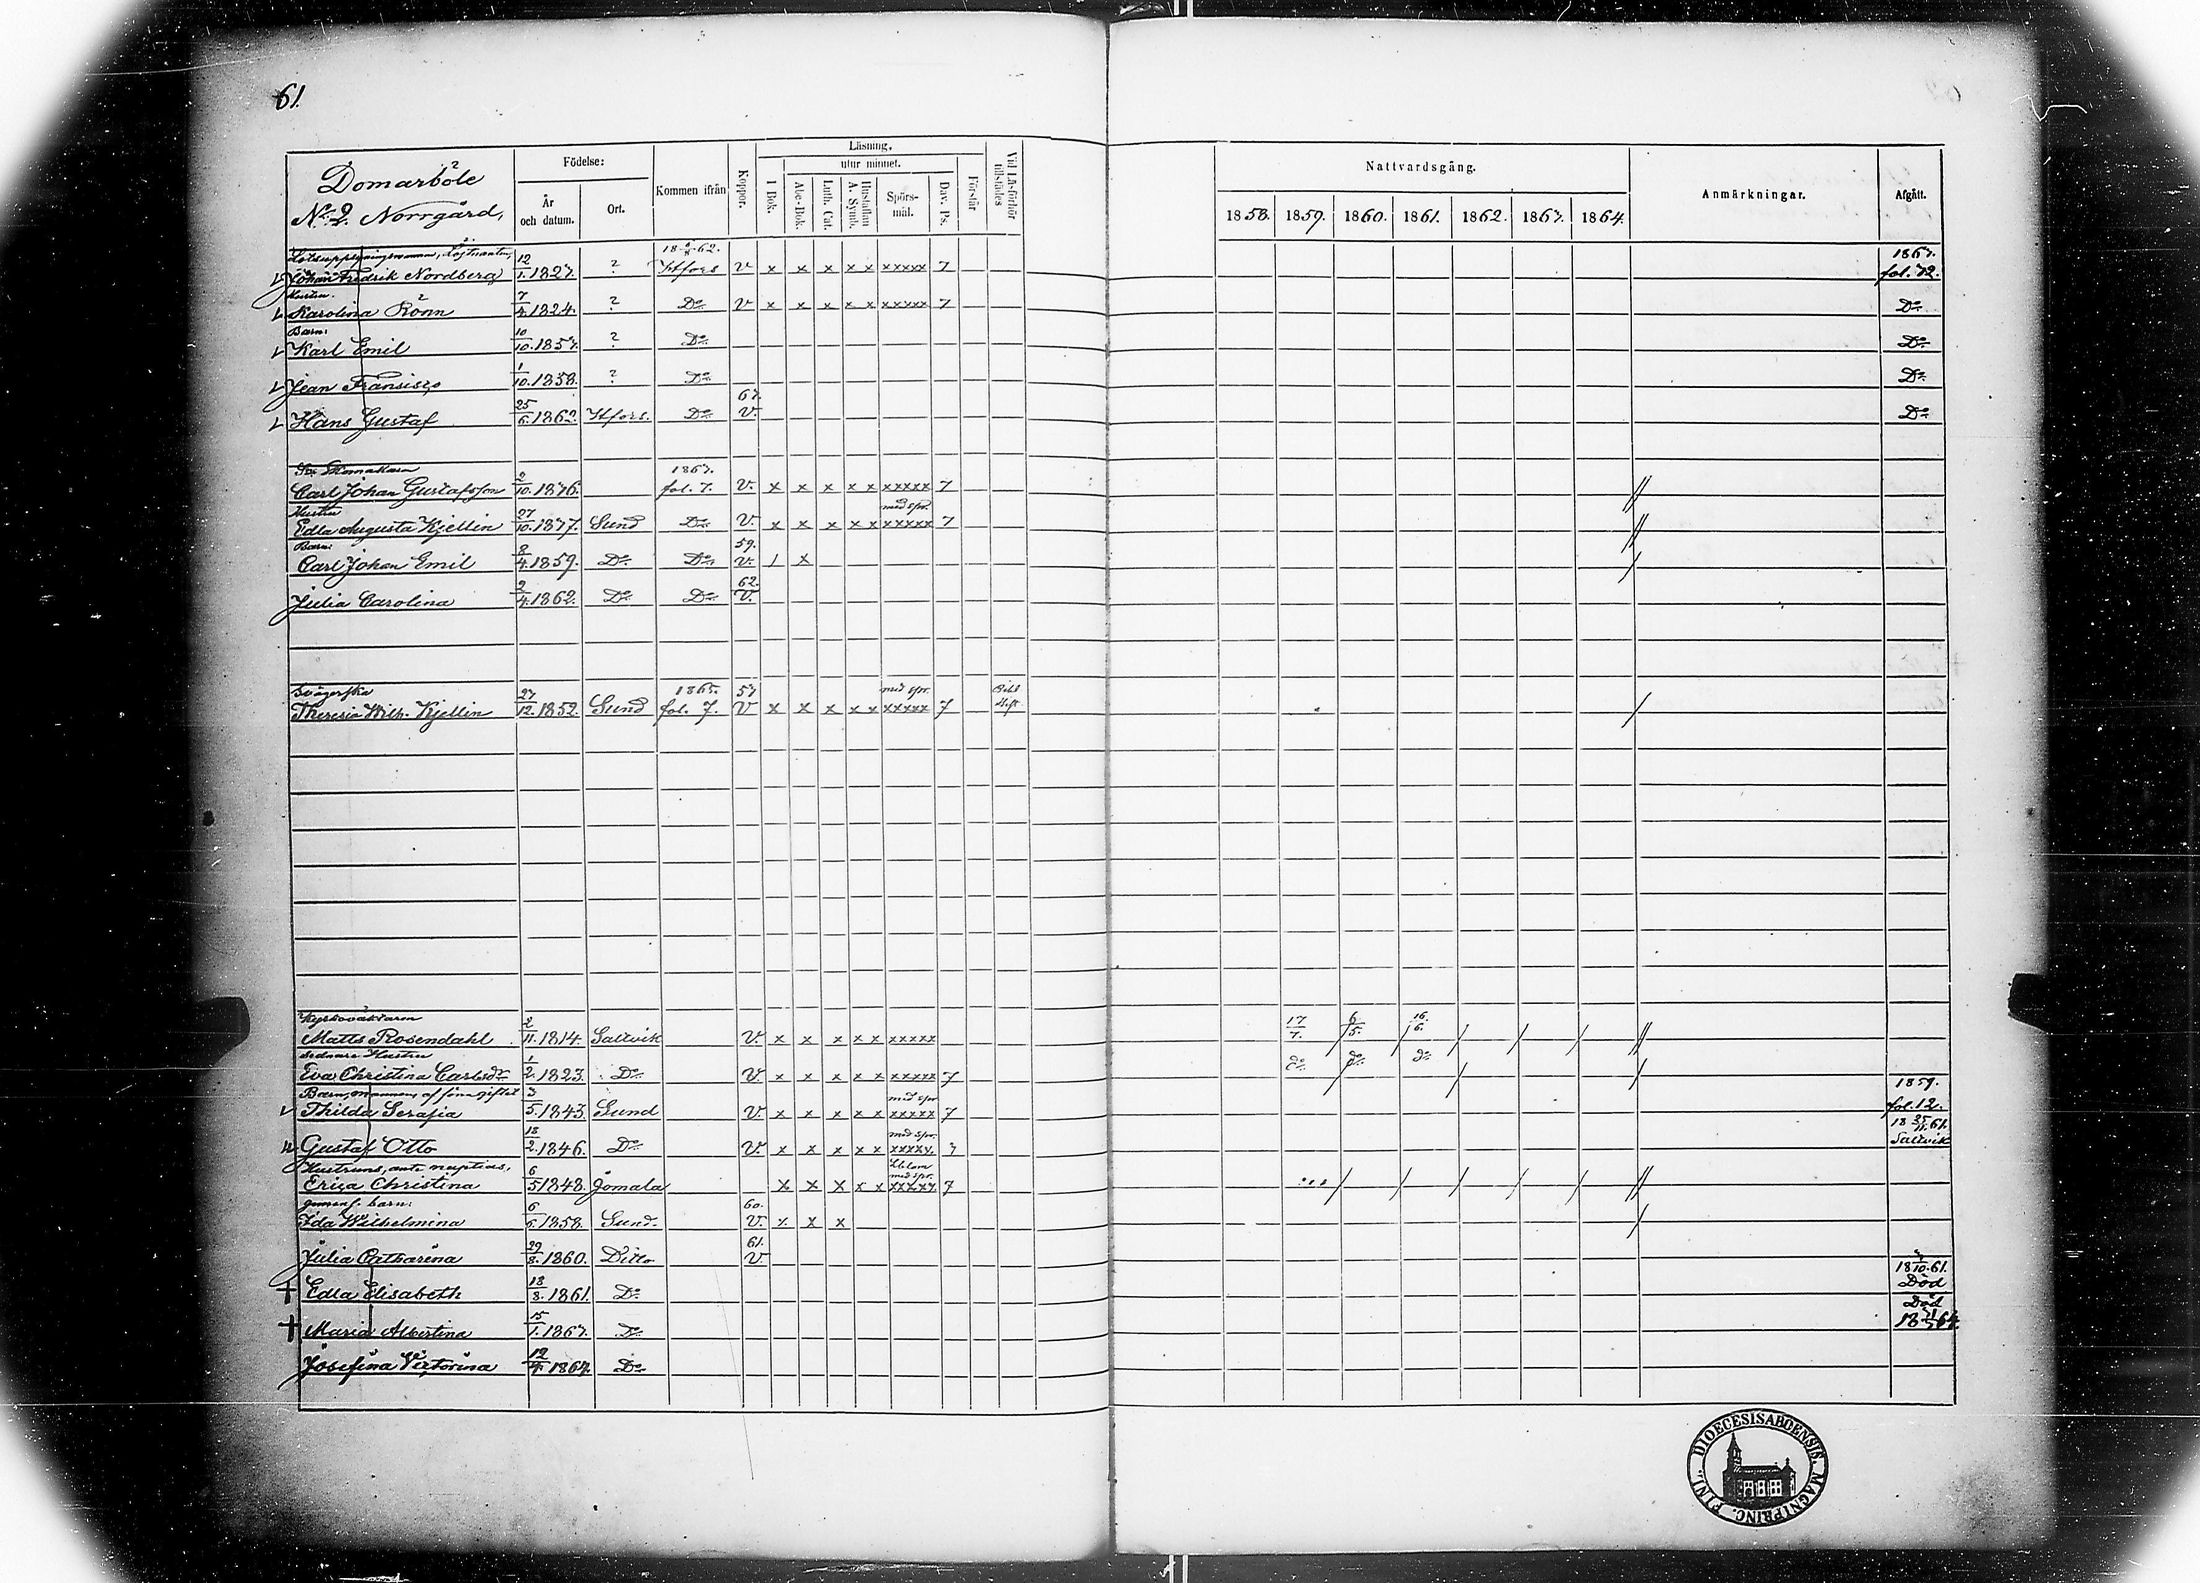 61.
Domarböle
No 2. Norrgård,
Födelse:
År och datum.
Ort.
Kommen ifrån
Koppor.
Läsning,
utur minnet.
I Bok.
Abc-Bok.
Luth. Cat.
Hustaflan A. Symb.
Spörs-mål.
Dav. Ps.
Förstår
Vid Läsförhör tillstädes
Nattvardsgång.
1858. 1859. 1860. 1861. 1862. 1863. 1864.
Anmärkningar.
Afgått.
Johan Fredrik Nordberg 12/1. 1823. ? Htfors v x x x x x xxxxx 7 1863. fol. 72.
Hustru.
Karolina Rönn 7/4. 1824. ? Do v x x x x x xxxxx 7 Do
Barn:
Karl Emil 10/10. 1853. ? Do Do
Jean Fransisco 1/10. 1858. ? Do Do
63.
Hans Gustaf 25/6. 1862. Htfors. Do V. Do
Skomakaren
1863.
Carl Johan Gustafsson 2/10. 1836. fol. 7. V. x x x x x xxxxx 7
Hustru med spr.
Edla Augusta Kjellin 27/10. 1837. Sund Do V. x x x x x xxxxx 7
Barn: 59.
Carl Johan Emil 8/4. 1859. Do Do V. / x
62.
Julia Carolina 2/4. 1862. Do Do V.
Svägerska 1865. 57 med spr.
Theresia Wilh. Kjellin 27/12. 1852. Sund fol. 7. V x x x x x xxxxx 7
Kyrkoväktaren
Matts Rosendahl 2/11. 1814. Saltvik V. x x x x x xxxxx 17/7. 6/5. 16/6.
sednare Hustru
Eva Christina Carlsdr 1/2. 1823. Do V. x x x x x xxxxx 7 do do do
Barn, mannens af förra giftet med spr 1859.
Thilda Serafia 3/5. 1843. Sund V. x x x x x xxxxx 7 fol. 12.
med spr. 18 25/11. 61.
Gustaf Otto 18/2. 1846. Do V. x x x x x xxxxx. 7 Saltvik
Hustruns, ante nuptias,
med spr.
Erica Christina 6/5 1848. Jomala x x x x x xxxxx 7
gemens. barn: 60.
Ida Wilhelmina 6/6. 1858. Sund. V. x x x
61.
Julia Catharina 29/8. 1860. Ditto V.
Edla Elisabeth 18/8. 1861. Do Död
Maria Albertina 15/1. 1863. Do Död
Josefina Victorina 12/4. 1864. Do
FINL. DIOECESIS ABOENSIS. MAGNI PRINC.